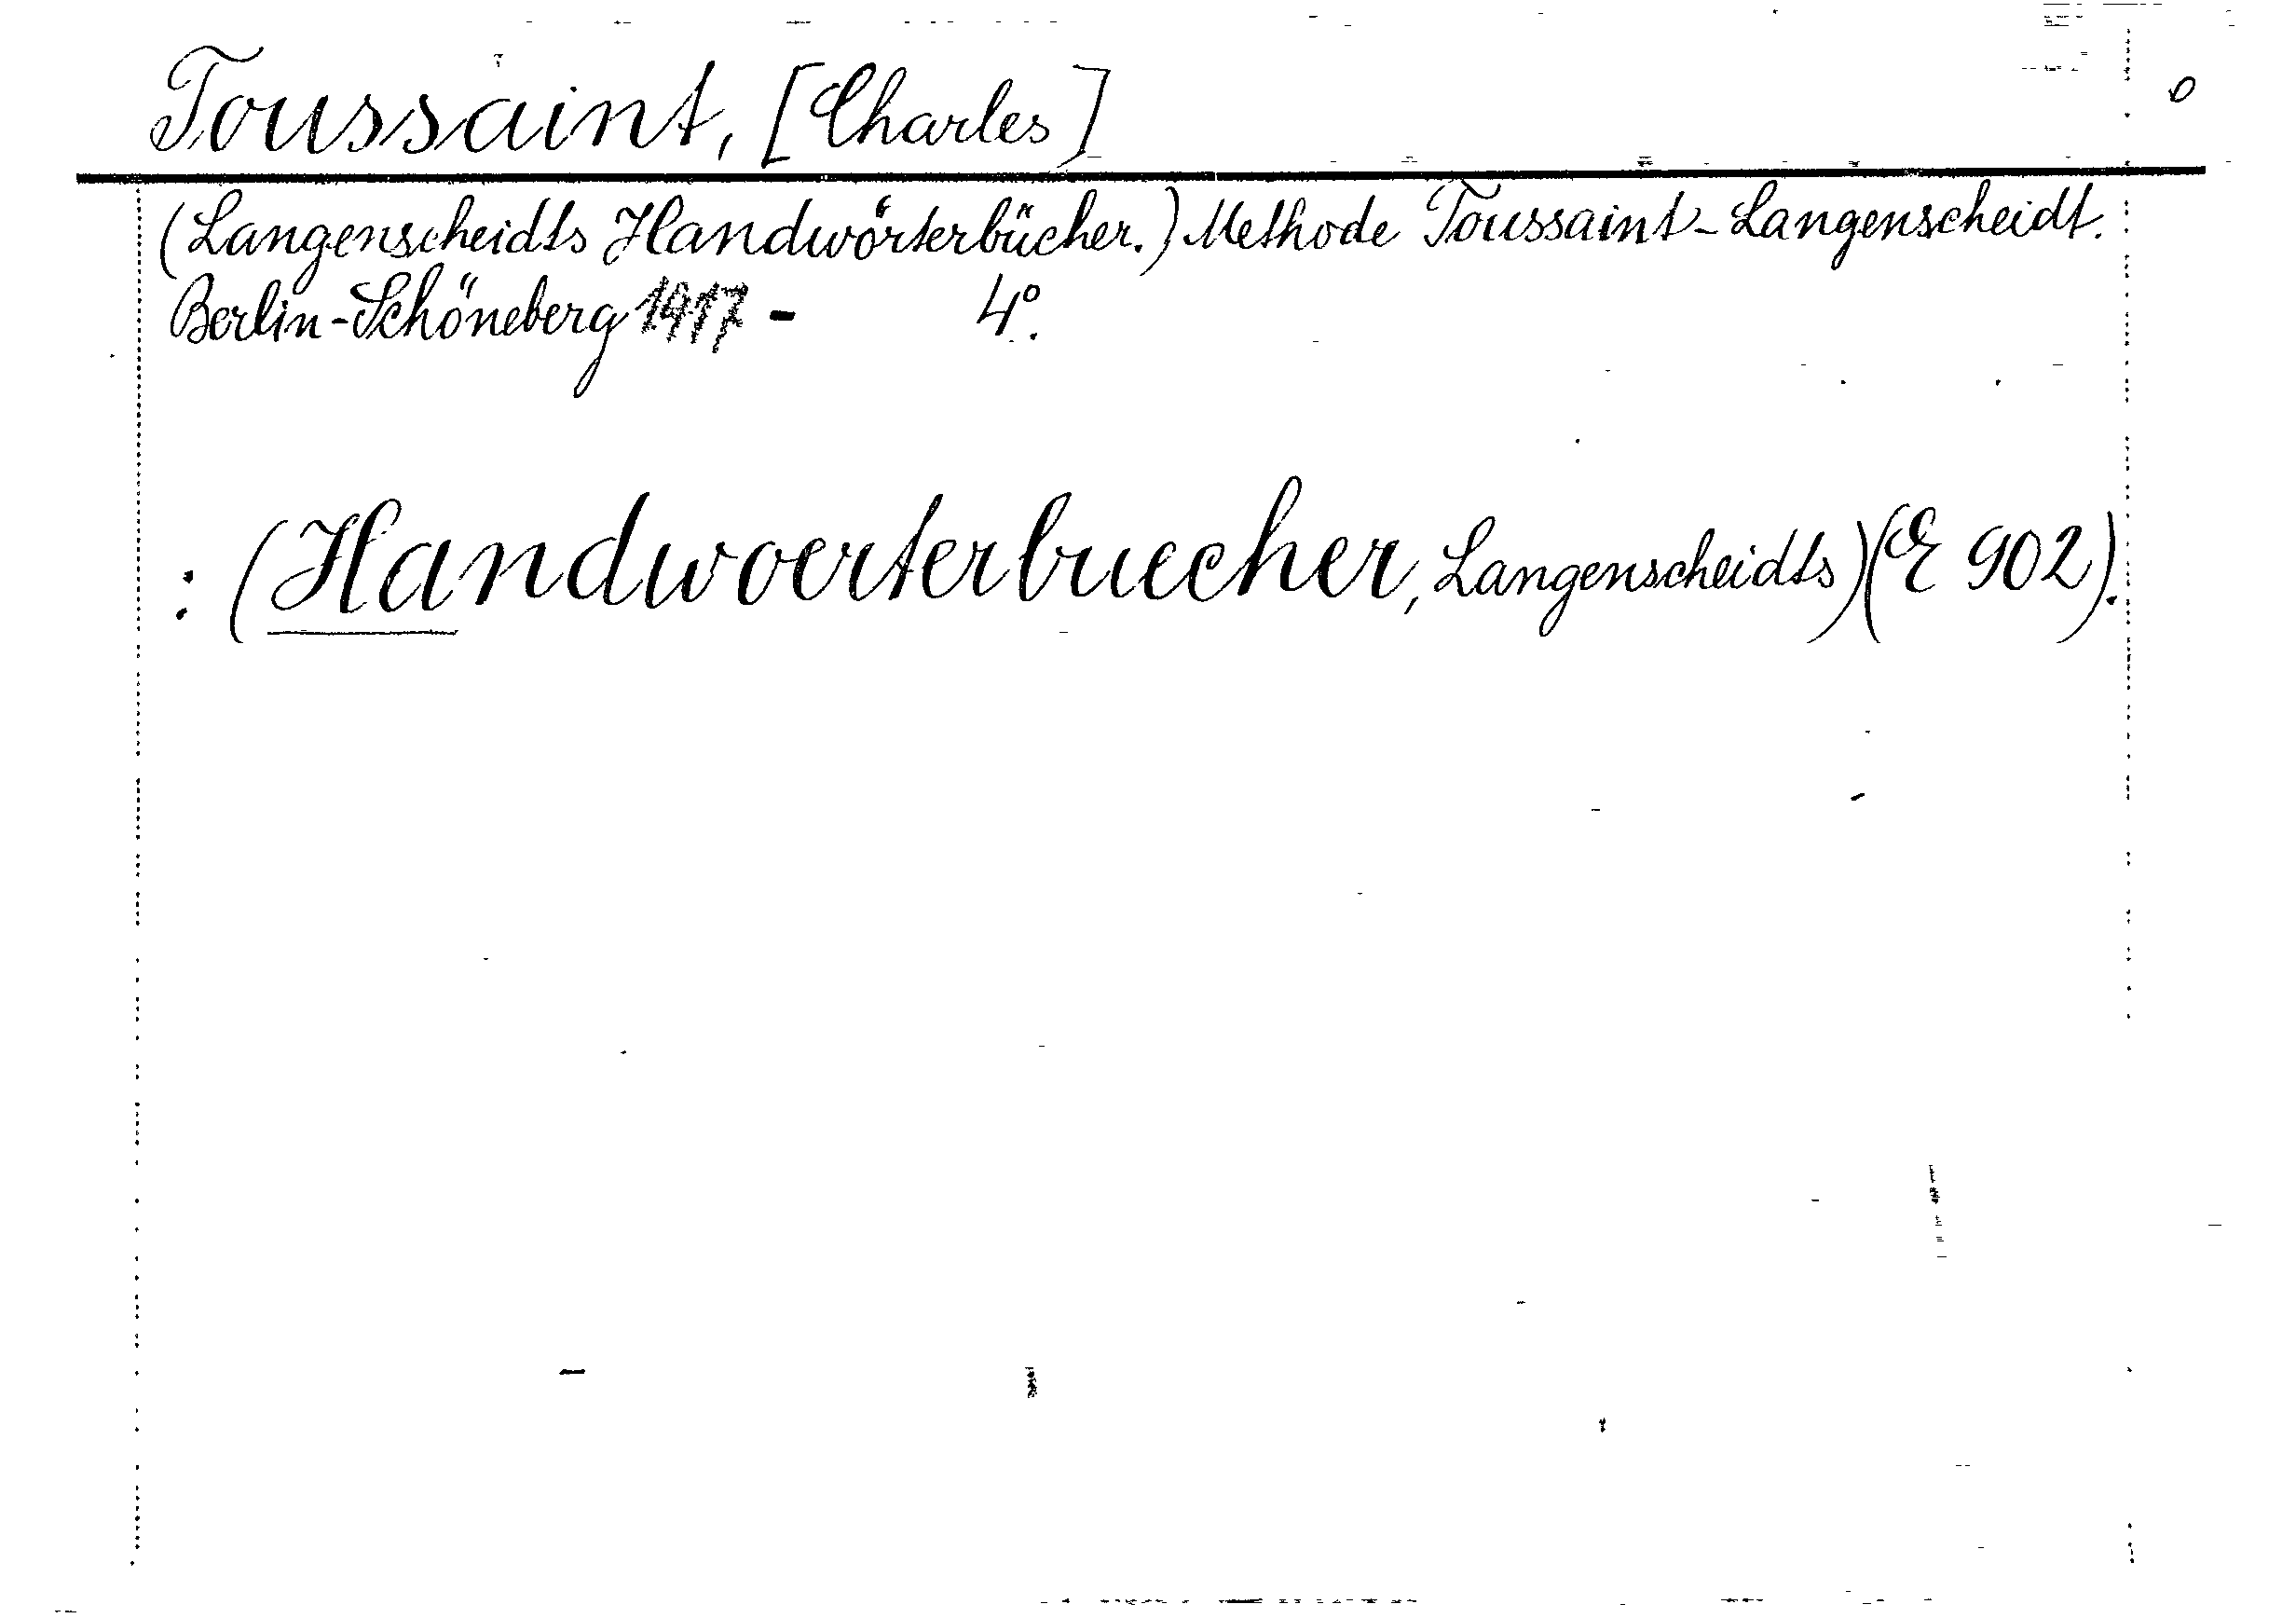 Toussaint, [Charles]
(Langenscheidts Handwörterbücher.) Methode Toussaint-Langenscheidt.
Berlin-Schöneberg 1917 - 4°.
: (Handwoerterbuecher, Langenscheidts) (E 902).